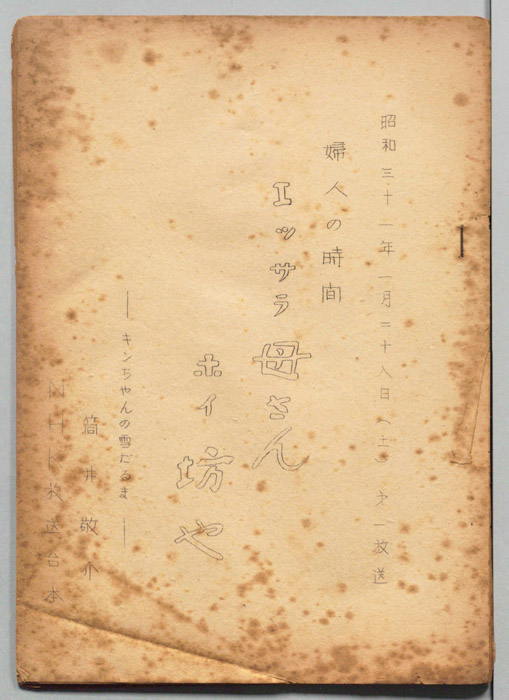 昭和三十一年一月二十八日(土) 第一放送
婦人の時間
エッサラ母さん
ホイ坊や
―キンちゃんの雪だるま―
筒井敬介
NHK放送台本